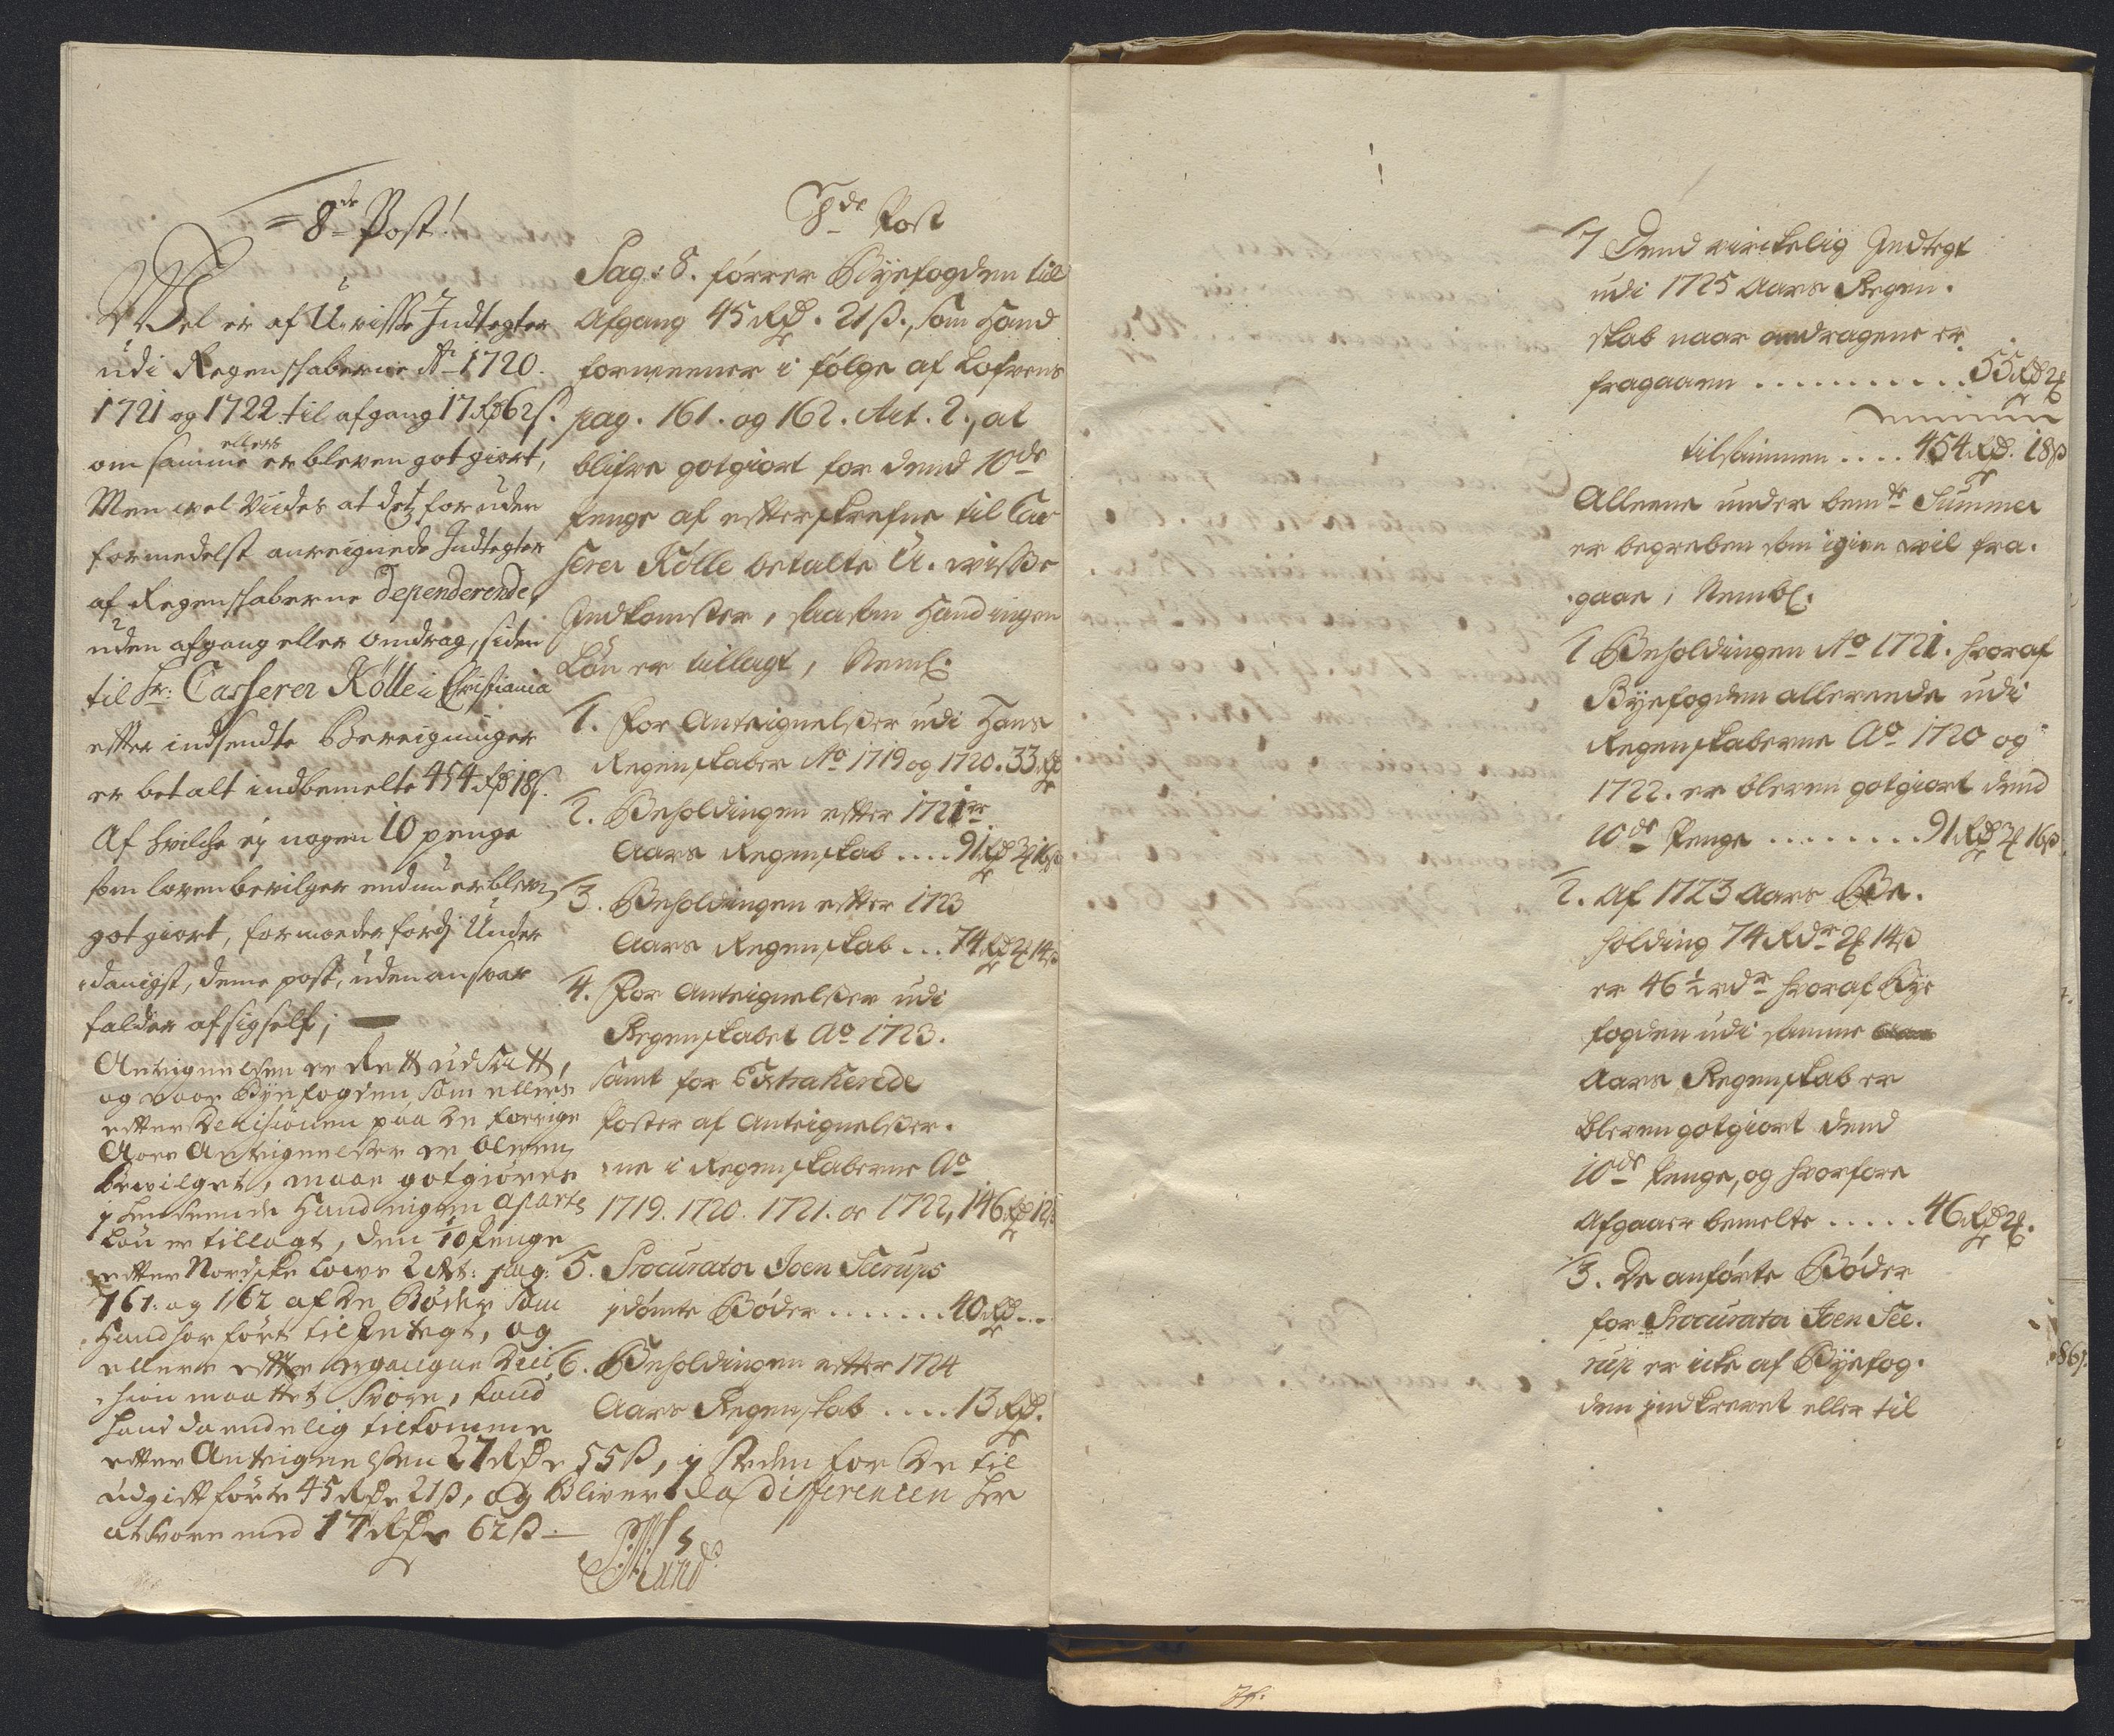 8de Post!
Wel er af U-visse Indtegter
udi Regenskaberne Ao 1720.
1721 og 1722 til afgang 17 Rd 62 s.
om samme ellers er bleven got giort,
Men vel Viides at det foruden
formedelst anteignede Indtegter
af Regenskaberne Dependerende,
uden afgang eller omdrag, siden
til Hr: Casserer Kölle i Christiania
efter indsendte Beregninger
er betalt indbemelte 454 Rd 18 s.
Af hvilche ej nogen 10 penge
som loven bevilger endnu er bleven
got giort, formoder fordj Under
danigst, denne post, uden ansvar
falder af sig self;
Anteignelsen er Rett udsatt,
og naar Byefogden, som ellers
efter Decisionen paa de forrige
Aars Anteignelser er bleven
bevilget, maae gotgiøres
j henseende Hand ingen aparte
Løn er tillagt, den 1/10 Penge
efter Nordske Lovs 2 Art: pag:
161. og 162 af de Bøder som
Hand har ført til Indtegt, og
ellers efter ergangne Deci
sion maattet svare, kand
hand da endelig tilkomme
efter Anteignelsen 27 Rdr 55 ß, j steden for de til
udgift førte 45 Rdr 21 ß, og bliver da differencen her
at svare med 17 Rdr 62 ß
8de Post
Pag: 8. fører Byefogden til
Afgang 45 Rd. 21 ß., som Hand
formeener i følge af Lofvens
pag. 161. og 162. Art. 2., at
blifve gotgiort for dend 10de
Penge af efterskrefne til Cas
serer Kölle betalte U. visse
Indkomster, saasom Hand ingen
Løn er tillagt, Neml.
1. For Anteignelser udi Hans
Regenskaber Ao 1719 og 1720. 33 Rd
2. Beholdingen efter 1721 er
Aars Regenskab .... 91 Rd 3 16 ß
3. Beholdingen efter 1723
Aars Regenskab ... 74 Rd 2 14 ß
4. For Anteignelser udi
Regenskabet Ao 1723.
samt for Extraherede
Poster af Anteignelser.
ne i Regenskaberne Ao
1719. 1720. 1721. oc 1722, 146 Rd 12 ß
5. Procurator Joen Seerups
jdømte Bøder ....... 40 Rd ...
6. Beholdingen efter 1724
Aars Regenskab .... 13 Rd.
7 Dend virckelig Indtegt
udi 1725 Aars Regen.
skab naar omdragene er
fragaaen ........... 55 Rd 2
tilsammen .... 454 Rd. 18 ß
Alleene under bemte Summer
er begreben som igien vil fra.
gaae, Nembl.
1 Beholdingen Ao 1721. hvoraf
Byefogden allereede udi
Regenskaberne Ao 1720 og
1722. er bleven gotgiort dend
10de Penge ........ 91 Rd 3 16 ß
2. Af 1723 Aars Be.
holding 74 Rdr 2 14 ß
er 46 1/2 rdr hvoraf Bye
fogden udi samme
Aars Regenskab er
bleven gotgiort dend
10de Penge, og hvorfore
Afgaaer bemelte ..... 46 Rd 2.
3. De anførte Bøder
for Procurator Joen See.
rup er icke af Byefog.
den jndkrevet eller til